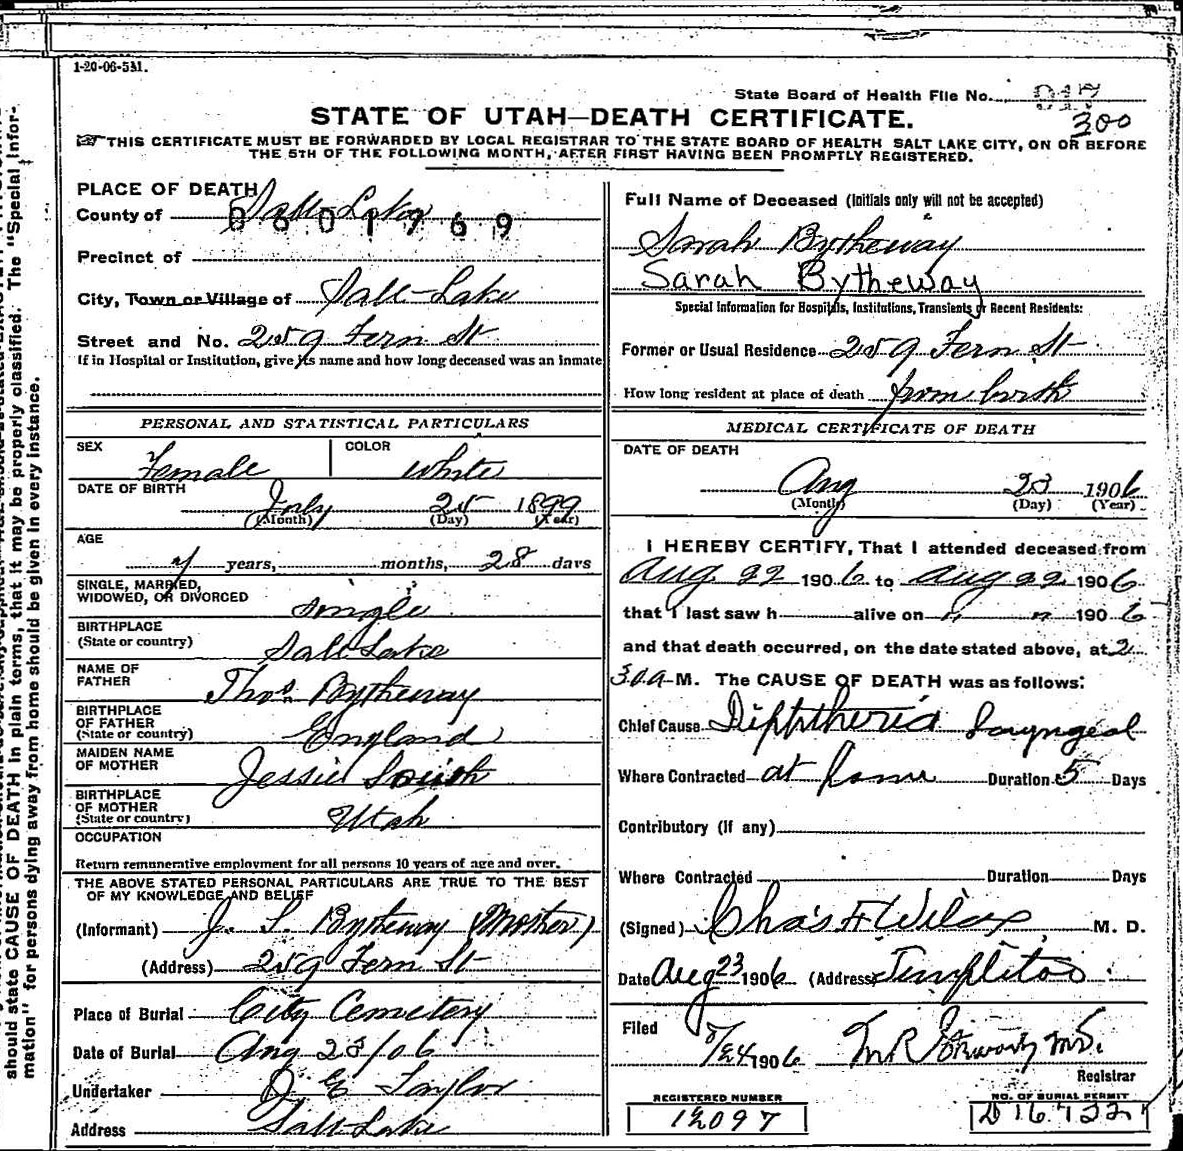 1-20-06-5M.
State Board of Health File No. 017
300
STATE OF UTAH—DEATH CERTIFICATE.
THIS CERTIFICATE MUST BE FORWARDED BY LOCAL REGISTRAR TO THE STATE BOARD OF HEALTH SALT LAKE CITY, ON OR BEFORE
THE 5TH OF THE FOLLOWING MONTH, AFTER FIRST HAVING BEEN PROMPTLY REGISTERED.
PLACE OF DEATH
County of Salt Lake
0601769
Precinct of
City, Town or Village of Salt-Lake
Street and No. 259 Fern St
If in Hospital or Institution, give its name and how long deceased was an inmate
PERSONAL AND STATISTICAL PARTICULARS
SEX Female COLOR White
DATE OF BIRTH July 25 1899
(Month) (Day) (Year)
AGE
7 years, months, 28 days
SINGLE, MARRIED,
WIDOWED, OR DIVORCED single
BIRTHPLACE
(State or country) Salt Lake
NAME OF
FATHER Thos Bytheway
BIRTHPLACE
OF FATHER
(State or country) England
MAIDEN NAME
OF MOTHER Jessie
BIRTHPLACE
OF MOTHER
(State or country) Utah
OCCUPATION
Return remunerative employment for all persons 10 years of age and over.
THE ABOVE STATED PERSONAL PARTICULARS ARE TRUE TO THE BEST
OF MY KNOWLEDGE AND BELIEF
(Informant) J. S. Bytheway (Mother)
(Address) 259 Fern St
Place of Burial City Cemetery
Date of Burial Aug 23/06
Undertaker Taylor
Address Salt Lake
Full Name of Deceased (Initials only will not be accepted)
Sarah Bytheway
Sarah Bytheway
Special Information for Hospitals, Institutions, Transients or Recent Residents:
Former or Usual Residence 259 Fern St
How long resident at place of death from birth
MEDICAL CERTIFICATE OF DEATH
DATE OF DEATH
Aug 23 1906
(Month) (Day) (Year)
I HEREBY CERTIFY, That I attended deceased from
Aug 22 1906 to Aug 22 1906
that I last saw h alive on " " 1906
and that death occurred, on the date stated above, at 2
30 A M. The CAUSE OF DEATH was as follows:
Chief Cause Diphtheria Laryngeal
Where Contracted at home Duration 5 Days
Contributory (if any)
Where Contracted Duration Days
(Signed) Chas F Wilcox M. D.
Date Aug 23 1906 (Address) Templeton
Filed 8/24 1906 M.D.
Registrar
REGISTERED NUMBER
12097
NO. OF BURIAL PERMIT
D 16722
should state CAUSE OF DEATH in plain terms, that it may be properly classified. The "Special Infor-
mation" for persons dying away from home should be given in every instance.